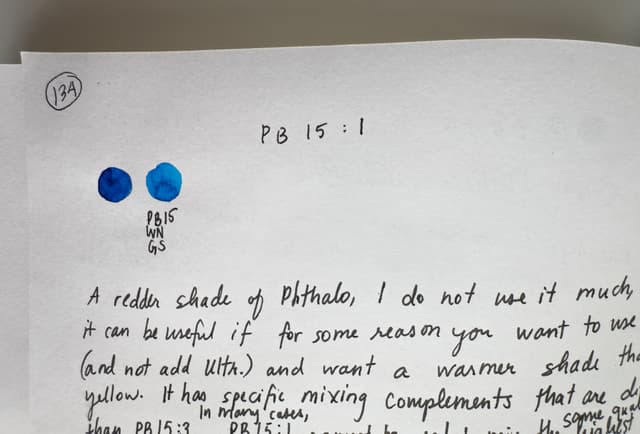 134
PB 15 : 1
PB15
WN
GS
A redder shade of Phthalo, I do not use it much,
it can be useful if for some reason you want to use
(and not add Ultr.) and want a warmer shade tha
yellow. It has specific mixing complements that are di
In many cases, some qua
than PB 15:3 PB 15:1 the